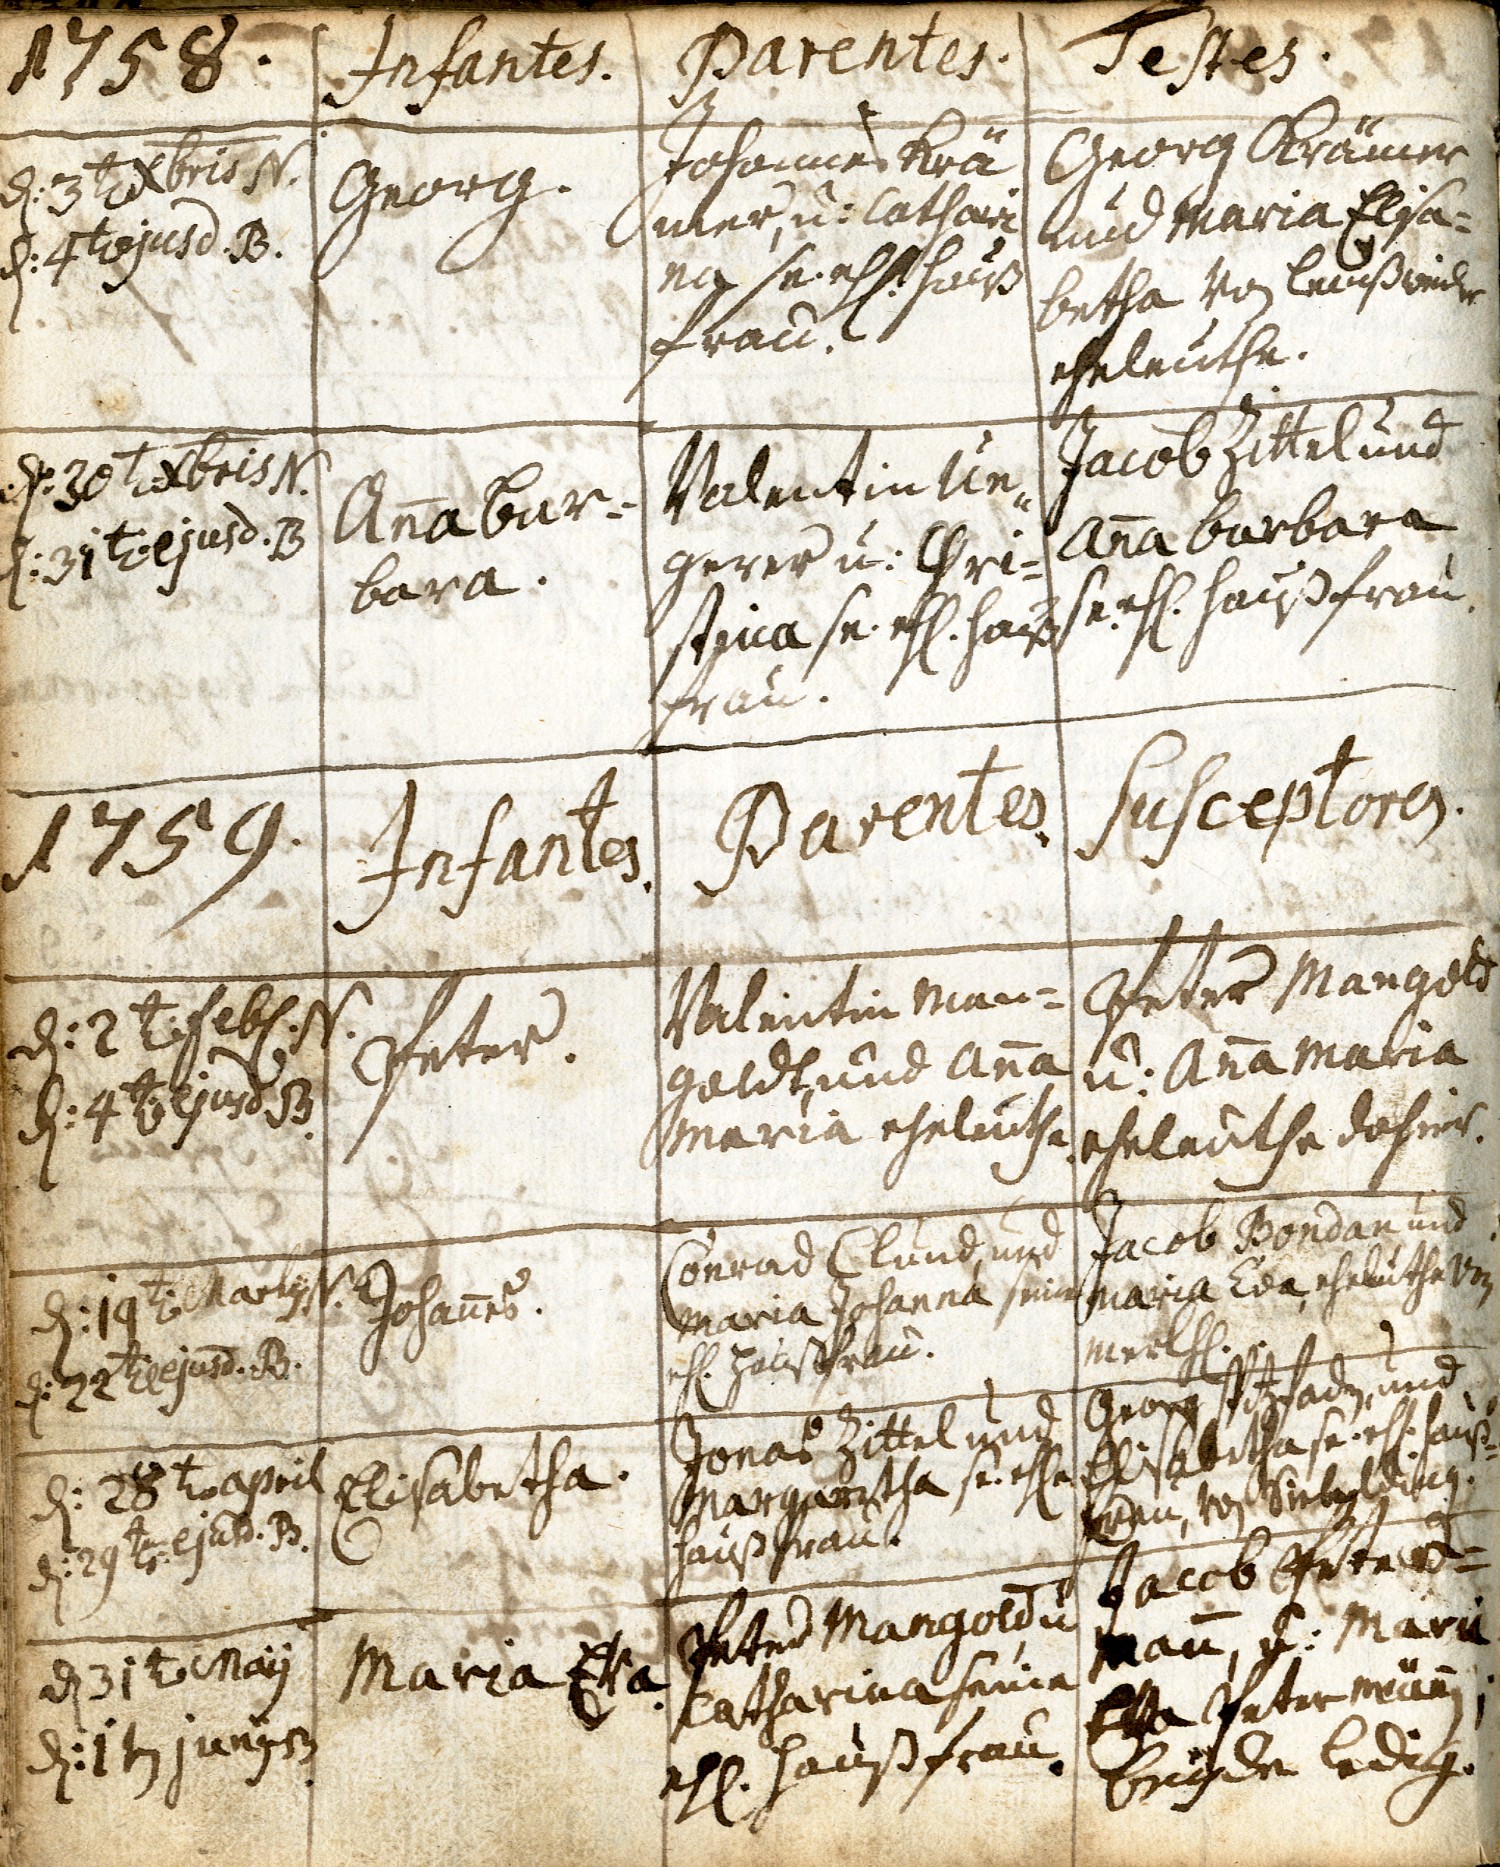 1758. Infantes. Parentes. Testes.
d: 3t Xbris N.
d: 4t ejusd. B.
Georg.
Johannes Krä
mer, u: Cathari
na se. ehl. hauß
frau.
Georg Krämer
und Maria Elisa=
betha von
eheleuthe.
d: 30t Xbris N.
d: 31t ejusd. B
Aña Bar=
bara.
Valentin Un=
gerer u: Chri=
stina se. ehl. hauß
frau.
Jacob Zittel und
Aña Barbara
se. ehl. haußfrau.
1759. Infantes. Parentes. Susceptores.
d: 2t. Feb. N.
d: 4t ejusd B.
Peter.
Valentin Man=
goldt, und Aña
Maria eheleuthe.
Peter Mangold
u: Aña Maria
eheleuthe dahier.
d: 19t Martij N.
d: 22t ejusd. B.
Johañes.
Conrad Clund, und
Maria Johanna seine
ehl. haußfrau.
Jacob Bondan und
Maria Eva, eheleuthe von
d: 28t april
d: 29t ejusd. B.
Elisabetha.
Jonas Zittel und
Margaretha se. ehl.
haußfrau.
Georg und
Elisabetha se. ehl. hauß=
frau, von Siebeldting.
d 31t Maÿ
d: 1t junÿ B
Maria Eva.
Peter Mangold u
Catharina seine
ehl. haußfrau.
Jacob Peter=
mañ, u: Maria
Eva Petermäñin
beyde ledig.